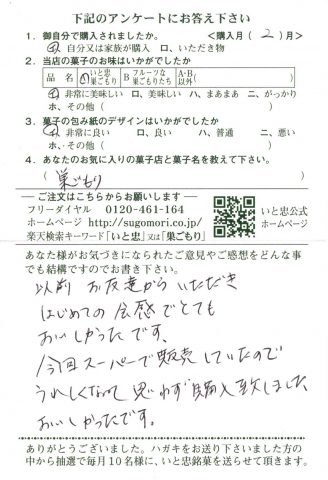 下記のアンケートにお答え下さい
1. 御自分で購入されましたか。 <購入月( 2 )月>
イ、自分又は家族が購入 ロ、いただき物
2. 当店の菓子のお味はいかがでしたか
品 名 A いと忠巣ごもり B フルーツな巣ごもりたち A・B以外( )
イ、非常に美味しい ロ、美味しい ハ、まあまあ ニ、がっかり
ホ、その他( )
3. 菓子の包み紙のデザインはいかがでしたか
イ、非常に良い ロ、良い ハ、普通 ニ、悪い
ホ・その他( )
4. あなたのお気に入りの菓子店と菓子名を教えて下さい。
( 巣ごもり )
ご注文はこちらからお願いします
フリーダイヤル 0120-461-164
ホームページ http://sugomori.co.jp/
楽天検索キーワード「いと忠」又は「巣ごもり」
いと忠公式
ホームページ
あなた様がお気づきになられたご意見やご感想をどんな事
でも結構ですのでお書き下さい。
以前 お友達から いただき
はじめての 食感でとても
おいしかったです。
今回スーパーで販売していたので
うれしくなって 思わず購入致しました
おいしかったです。
ありがとうございました。ハガキをお送り下さいました方の
中から抽選で毎月10名様に、いと忠銘菓を送らせて頂きます。